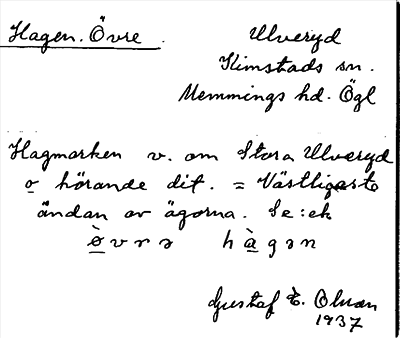 Hagen. Övre. Ulveryd
Kimstads sn.
Memmings hd. Ögl
Hagmarken v. om Stora Ulveryd
o hörande dit. = Västligaste
ändan av ägorna. Se: ek
ö̀vrə hàgən
Gustaf E. Olman
1937